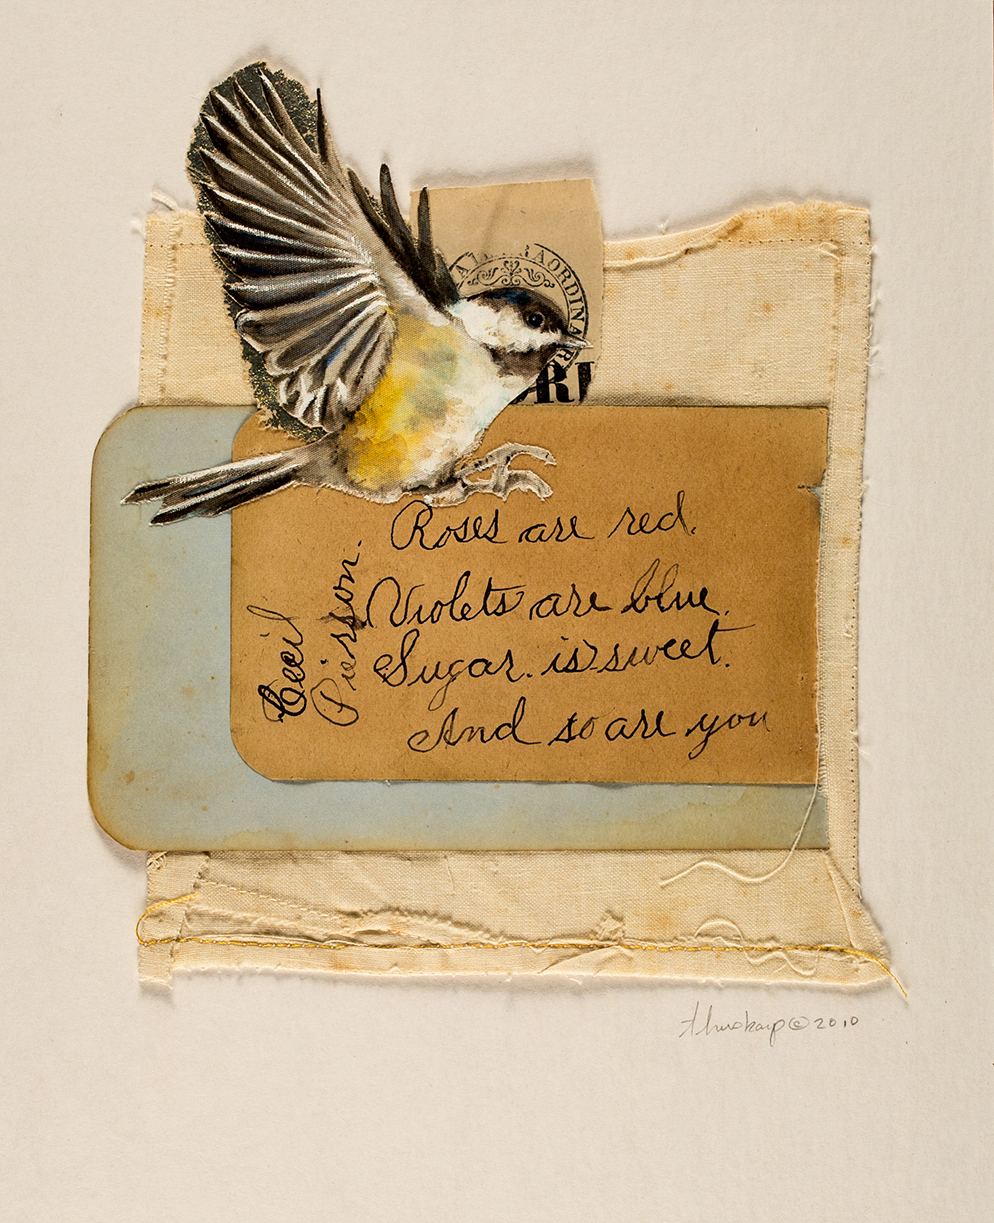 RI
Roses are red.
Violets are blue.
Sugar. is sweet.
And so are you
Cecil
Pierson.
© 2010